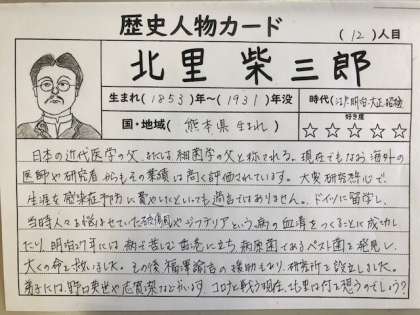 歴史人物カード
(12)人目
北里 柴三郎
生まれ(1853)年~(1931)年没
時代(江戸,明治,大正,昭和)
国・地域(熊本県生まれ)
好き度
☆☆☆☆☆
日本の近代医学の父、または細菌学の父と称される。現在でもなお海外の
医師や研究者からもその業績は高く評価されています。大変研究熱心で
生涯を感染症予防に費やしたといっても過言ではありません。ドイツに留学し、
当時人々を悩ませていた破傷風やジフテリアという病の血清をつくることに成功し
たり、明治27年には病で苦しむ香港に立ち病原菌であるペスト菌を発見し、
多くの命を救いました。その後福澤諭吉の援助もあり、研究所を設立しました。
弟子には、野口英世や志賀潔などがいます。コロナと戦う現在、北里は何と思うのでしょう?